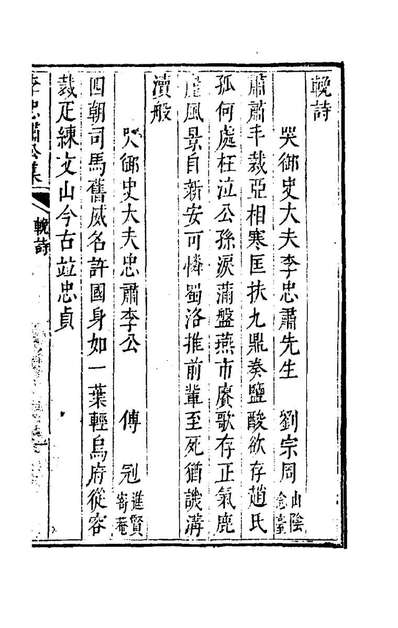 輓詩
哭御史大夫李忠肅先生 劉宗周 山陰 念臺
肅肅丰裁亞相寒匡扶九鼎奏鹽酸欲存趙氏
孤何處枉泣公孫淚滿盤燕市賡歌存正氣鹿
風景自新安可憐蜀洛推前輩至死猶譏溝
瀆般
哭御史大夫忠肅李公 傅冠 進賢 寄菴
四朝司馬舊威名許國身如一葉輕烏府從容
裁疋練文山今古竝忠貞
李忠肅公集
輓詩